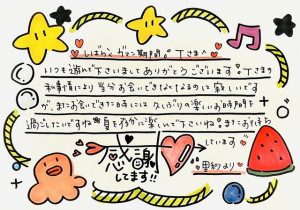 しばらくガマン期間。Tさまへ
いつも遊んで下さいましてありがとうございます。Tさまの
お事情により当分お会いできなくなるのは寂しいです
が、またお会いできた時には久しぶりの楽しいお時間を
過ごしたいですね 夏を存分に楽しんで下さいね。またお待ち
しています
感謝
してます!!
里約より